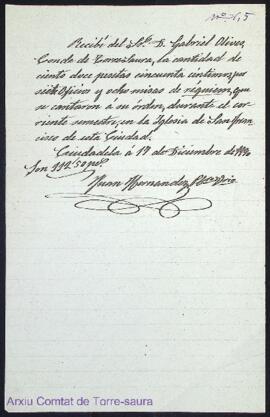 Recibí del Sr. D. Gabriel Olives,
Conde de Torre-Saura, la cantidad de
ciento doce pesetas cincuenta centimos por
siete oficios y ocho misas de réquiem, que
se cantaron a su órden, durante el cor-
riente semestre, en la Iglesia de San Fran-
cisco de esta Ciudad.
Ciudadela á 17 de Diciembre de
Son 112'50 pts.
Juan Hernandez Pbro.
Arxiu Comtat de Torre-saura